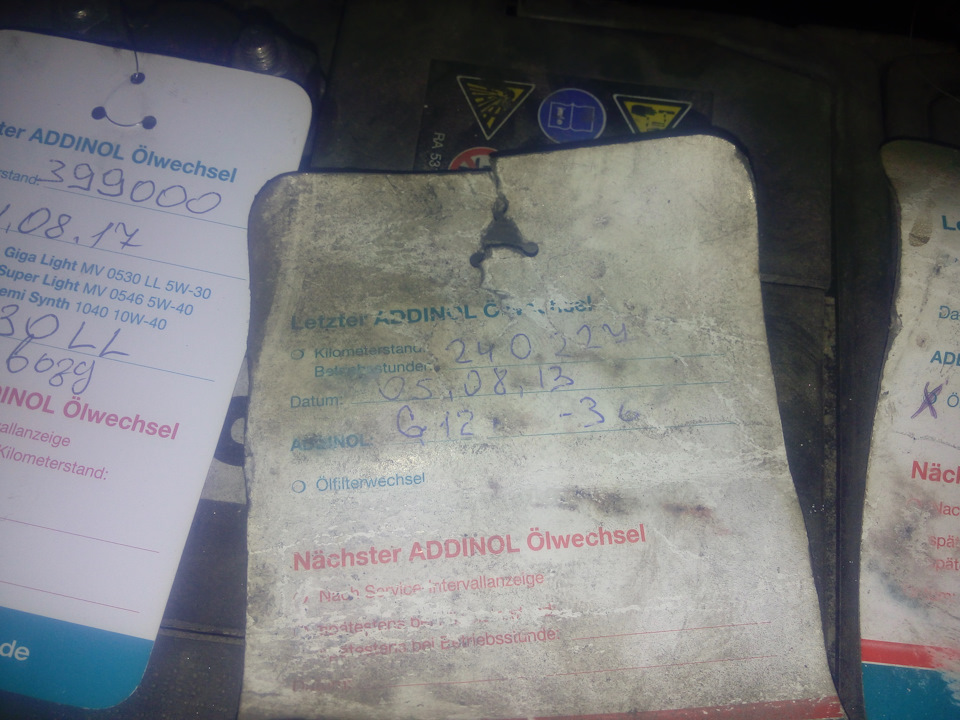 ter ADDINOL Ölwechsel
rstand: 399000
.08.17
Giga Light MV 0530 LL 5W-30
Super Light MV 0546 5W-40
emi Synth 1040 10W-40
30 LL
DINOL Ölwechsel
vallanzeige
Kilometerstand:
de
RA 53
Letzter ADDINOL Ölwechsel
Kilometerstand:
Betriebsstunden: 240 224
Datum: 05.08.13
ADDINOL: G 12.
Ölfilterwechsel
Nächster ADDINOL Ölwechsel
Nach Service-Intervallanzeige
spätestens bei Betriebsstunde:
Le
Da
ADD
Ö
Näch
Nac
spät
spät